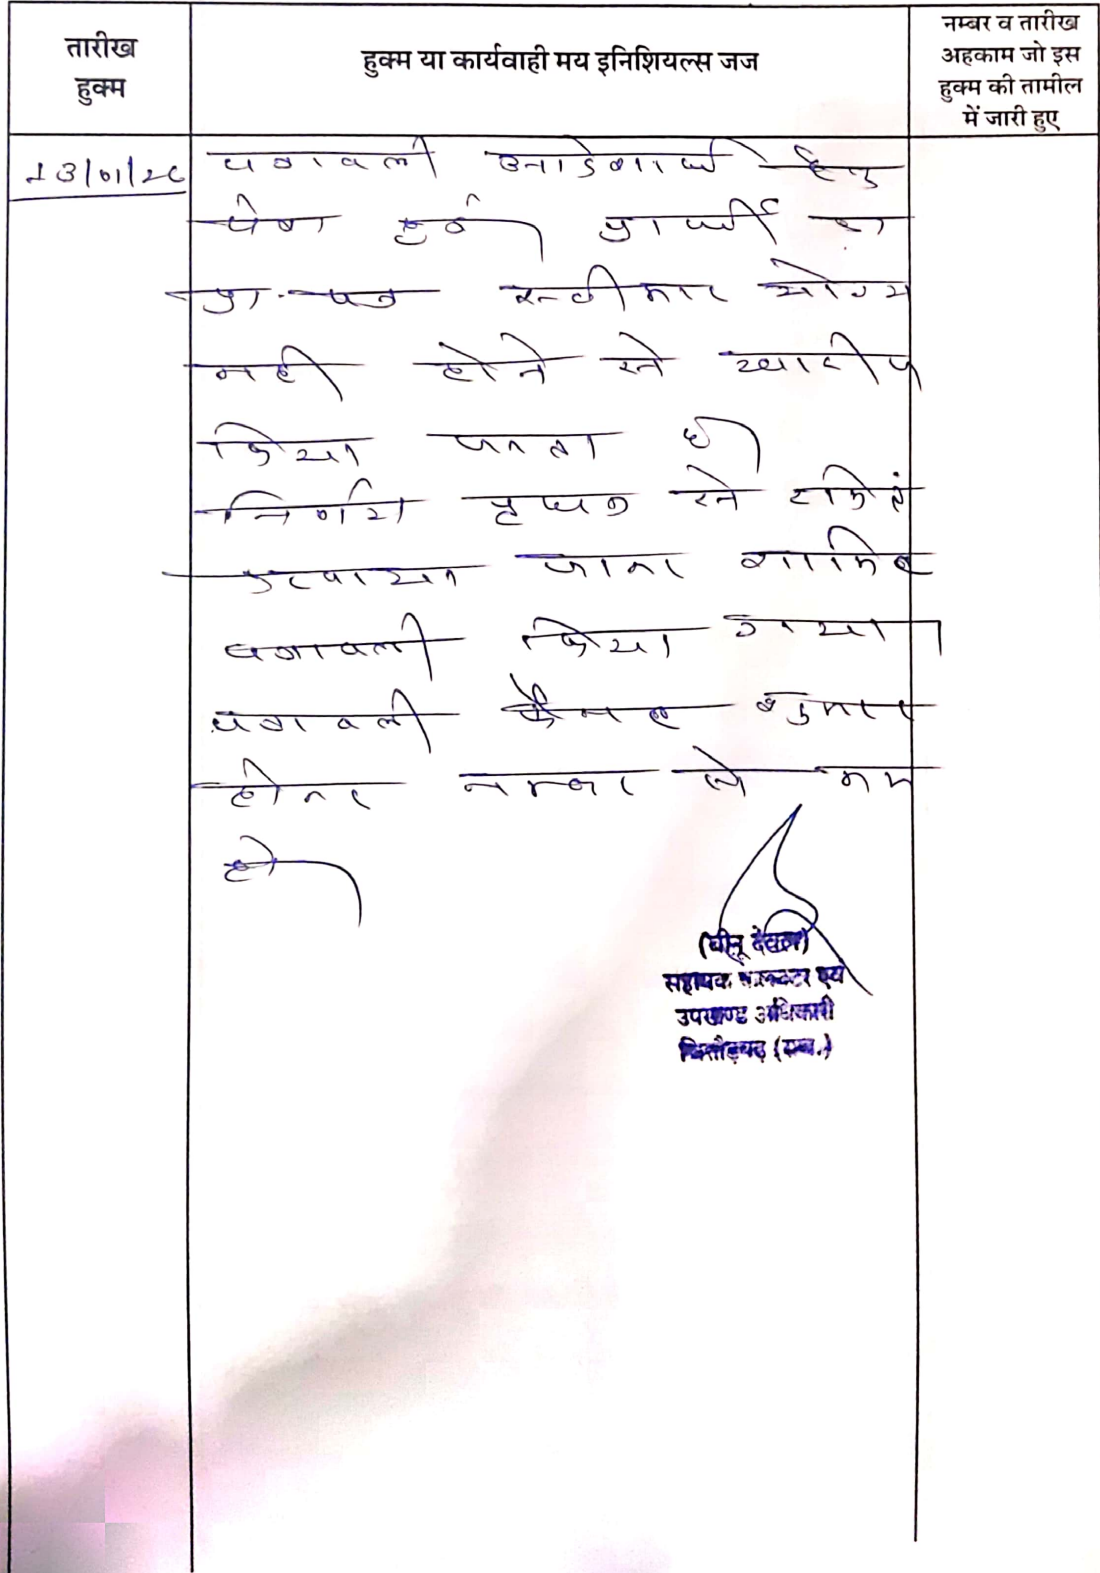 तारीख
हुक्म
हुक्म या कार्यवाही मय इनिशियल्स जज
नम्बर व तारीख
अहकाम जो इस
हुक्म की तामील
में जारी हुए
13/01/26 पत्रावली आदेशार्थ हेतु
पेश हुई। प्रार्थी का
प्रा. पत्र स्वीकार योग्य
नही होने से खारीज
किया जाता है।
निर्णय पृथक से टंकित
करवाया जाकर शामिल
पत्रावली किया गया।
पत्रावली फैसल शुमार
होकर नम्बर से कम
हो।
सहायक कलक्टर एवं
उपखण्ड अधिकारी
चित्तौड़गढ़ (राज.)